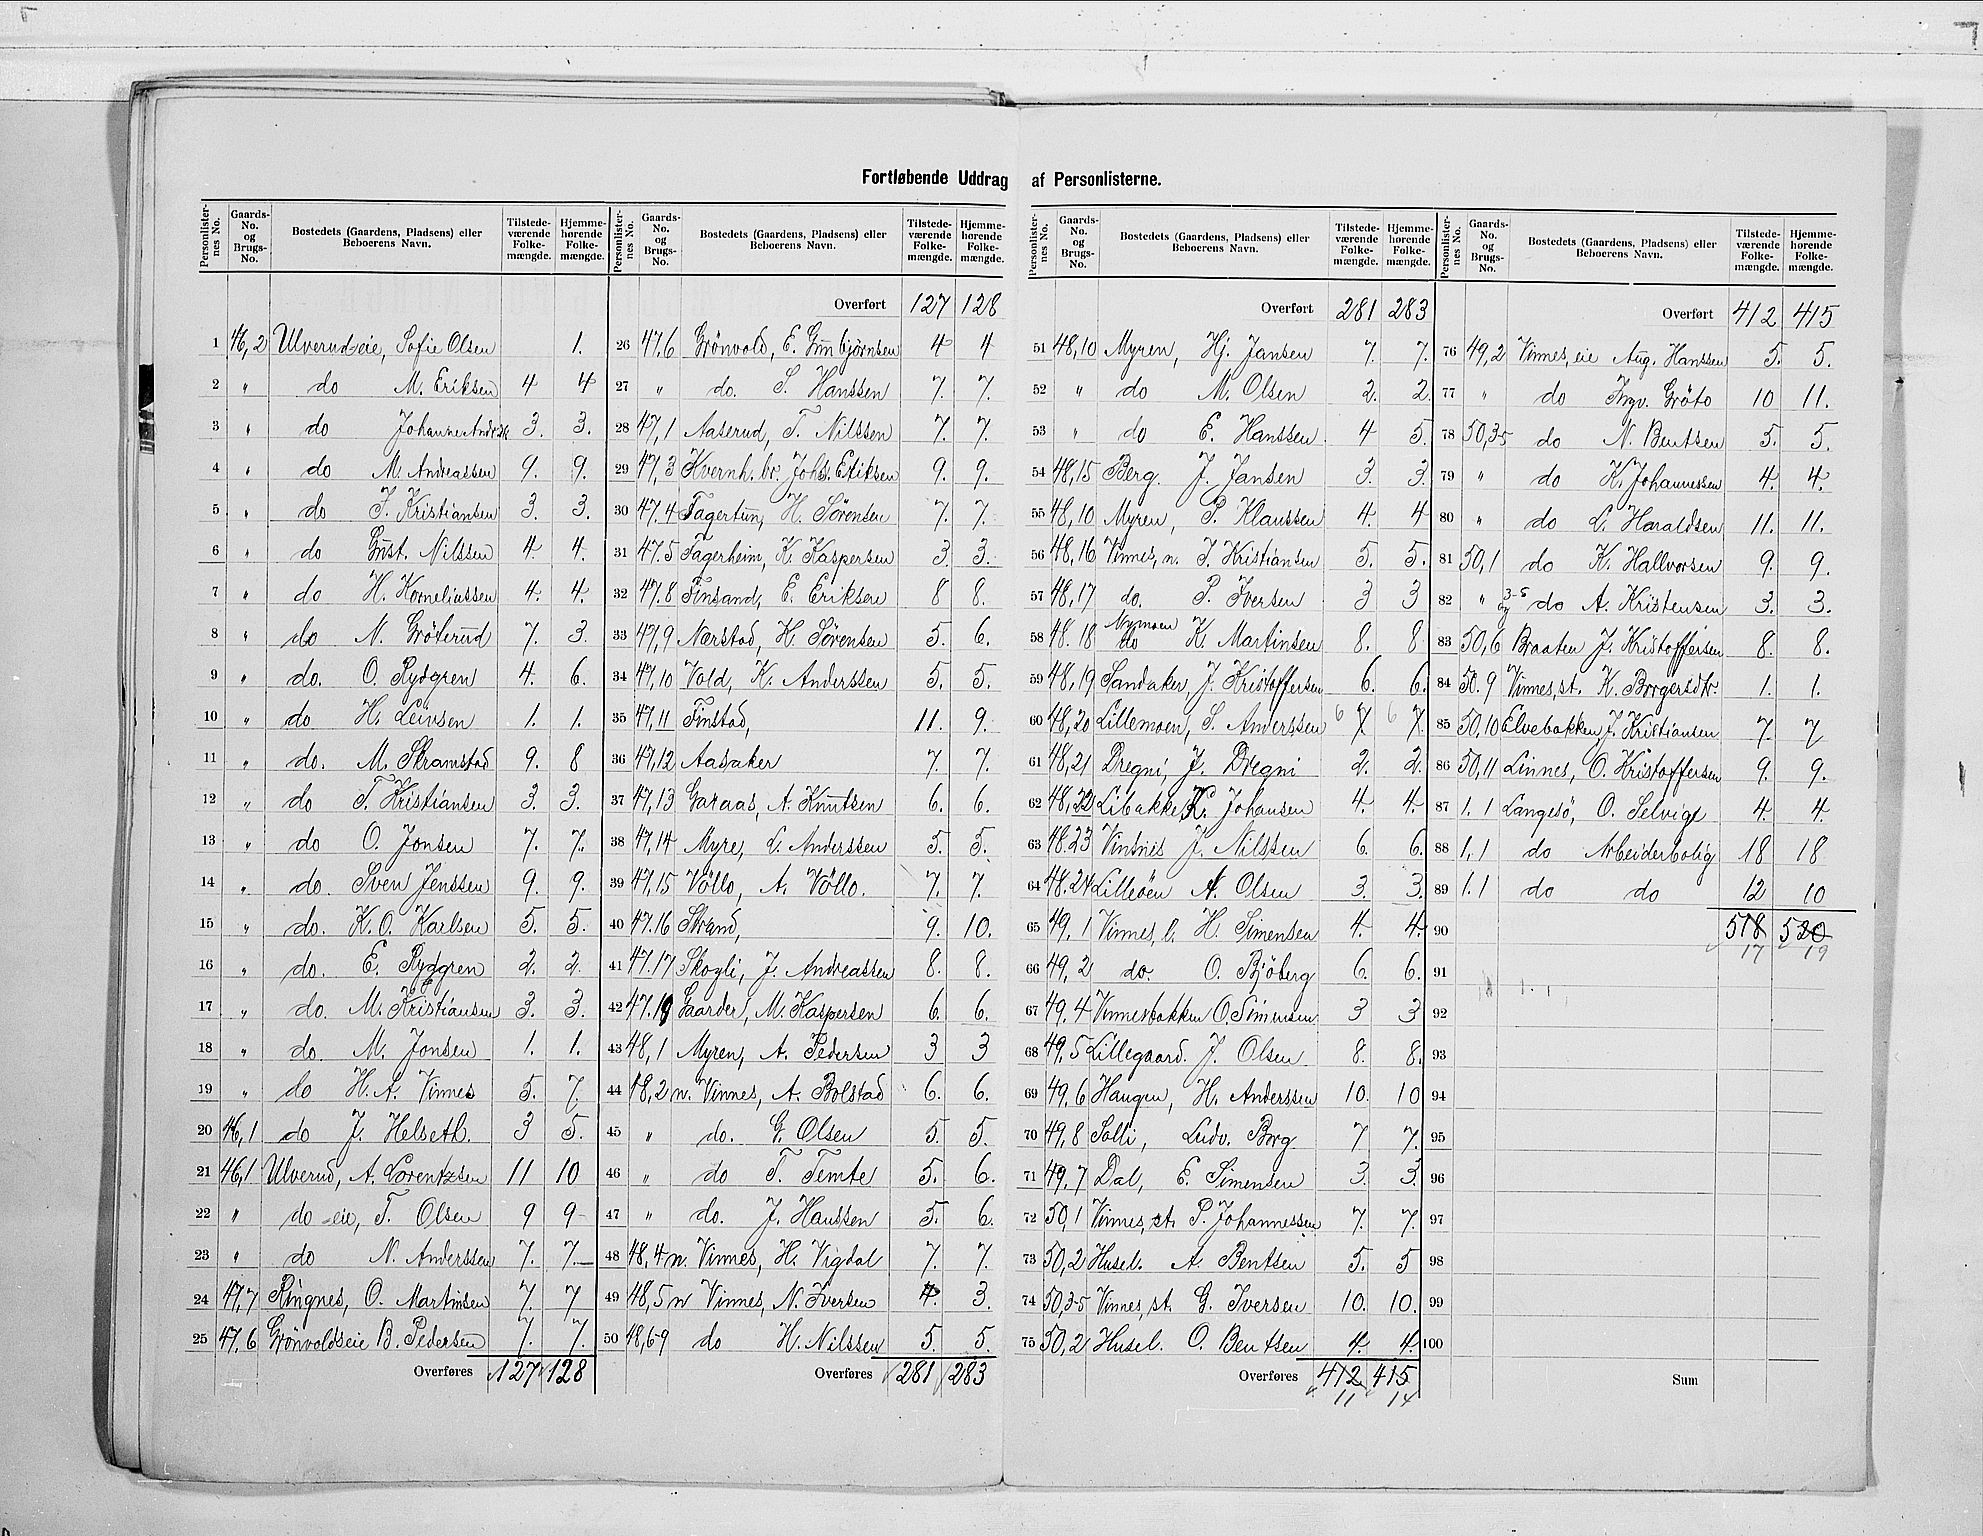 Fortløbende Uddrag af Personlisterne.
Personlister-nes No. Gaards-No. og Brugs-No. Bostedets (Gaardens, Pladsens) eller Beboerens Navn. Tilstede-værende Folke-mængde. Hjemme-hørende Folke-mængde.
1 46,2 Ulverudseie, Sofie Olsen 1.
2 " do M. Eriksen 4 4
3 " do Johanne 3. 3.
4 " do M. Andreassen 9. 9.
5 " do J. Kristiansen 3. 3.
6 " do Gust. Nilssen 4 4.
7 " do H. Korneliussen 4. 4.
8 " do N. Gröterud 7. 3.
9 " do. O. Rydgren 4. 6.
10 " do H. Leivsen 1. 1.
11 " do. M. Skramstad 9. 8
12 " do T. Kristiansen 3. 3.
13 " do O. Jonsen 7. 7.
14 " do. Sven Jenssen 9. 9.
15 " do. K. O. Karlsen 5. 5.
16 " do. E. Rydgren 2. 2.
17 " do. M. Kristiansen 3. 3.
18 " do. M. Jonsen 1. 1.
19 " do H. A. Vinnes 5. 7.
20 46,1 do J. Helseth. 3 5.
21 46,1 Ulverud, A. Lorentzsen 11 10
22 " do eie, T. Olsen 9 9
23 " do N. Anderssen 7. 7.
24 47,7 Ringnes, O. Martinsen 7. 7
25 47,6 Grönvoldseie B. Pedersen 7. 7.
Overføres 127 128
Personlister-nes No. Gaards-No. og Brugs-No. Bostedets (Gaardens, Pladsens) eller Beboerens Navn. Tilstede-værende Folke-mængde. Hjemme-hørende Folke-mængde.
Overført 127 128
26 47,6 Grönvold, E. Gunbjörnsen 4 4
27 " do. S. Hanssen 7. 7.
28 47,1 Aaserud, T. Nilssen 7. 7.
29 47,3 Kvernh. br. Johs. Eriksen 9. 9.
30 47.4 Fagertun, H. Sörensen 7. 7.
31 47.5 Fagerheim, K. Kaspersen 3 3.
32 47.8 Finsand, E. Eriksen 8 8.
33 47,9 Nærstad, H. Sörensen 5. 6.
34 47,10 Vold, K. Anderssen 5. 5.
35 47,11 Finstad, 11. 9.
36 47,12 Aasaker 7. 7.
37 47,13 Garaas, A. Knutsen 6. 6.
38 47,14 Myre, L. Anderssen 5. 5.
39 47,15 Völlo, A. Völlo. 7. 7.
40 47.16 Strand, 9. 10.
41 47.17 Skogli, J. Andreassen 8. 8.
42 47.19 Gaarder, M. Kaspersen 6. 6.
43 48,1 Myren, A. Pedersen 3 3
44 48,2 n. Vinnes, A. Bolstad 6. 6.
45 " do. G. Olsen 5. 5.
46 " do T. Temte 5. 6.
47 " do. J. Hanssen 5. 6.
48 48,4 n. Vinnes, H. Vigdal 7. 7.
49 48,5 n Vinnes, N. Iversen 4. 3.
50 48,6-9 do H. Nilssen 5. 5.
Overføres 281 283
Personlister-nes No. Gaards-No. og Brugs-No. Bostedets (Gaardens, Pladsens) eller Beboerens Navn. Tilstede-værende Folke-mængde. Hjemme-hørende Folke-mængde.
Overført 281 283
51 48,10 Myren, Hj. Jansen 7. 7.
52 " do M. Olsen 2. 2.
53 " do E. Hanssen. 4 5.
54 48,15 Berg. J. Jansen 3. 3.
55 48,10 Myren, P. Klaussen 4. 4
56 48,16 Vinnes, n. J. Kristiansen 5. 5.
57 48,17 do. P. Iversen 3 3
58 48.18 Nymoen do K. Martinsen 8. 8
59 48,19 Sandaker, J. Kristoffersen 6. 6.
60 48,20 Lillemoen, S. Anderssen 6 7 6 7.
61 48,21 Dregni, J. Dregni 2. 2.
62 48,22 Libakke, K. Johansen 4. 4.
63 48.23 Vintnes J. Nilssen 6. 6.
64 48.24 Lilleöen A. Olsen 3. 3.
65 49.1 Vinnes, l. H. Simensen 4. 4.
66 49,2 do. O. Bjöberg 6. 6.
67 49.4 Vinnesbakken O. Simensen 3 3
68 49.5 Lillegaard. J. Olsen 8. 8.
69 49.6 Haugen, H. Anderssen 10. 10
70 49.8 Solli, Ludv. Borg 7 7.
71 49.7 Dal, E. Simensen 3. 3.
72 50,1 Vinnes, st. P. Johannessen 7. 7.
73 50,2 Husel. A. Bentsen 5. 5
74 50,3-5 Vinnes, st. G. Iversen 10. 10.
75 50,2 Husel. O. Bentsen 4. 4.
Overføres 412 415
11 14
Personlister-nes No. Gaards-No. og Brugs-No. Bostedets (Gaardens, Pladsens) eller Beboerens Navn. Tilstede-værende Folke-mængde. Hjemme-hørende Folke-mængde.
Overført 412 415
76 49,2 Vinnes, eie Aug. Hanssen 5. 5.
77 " do Ingv. Gröto 10 11.
78 50,3-5 do N. Bentsen 5. 5.
79 " do K. Johannessen 4. 4.
80 " do L. Haraldsen 11. 11.
81 50,1 do K. Hallvorsen 9. 9.
82 " og 3-5 do A. Kristensen 3. 3.
83 50,6 Braaten J. Kristoffersen 8. 8.
84 50.9 Vinnes, st. K. Borgersdtr. 1. 1.
85 50,10 Elvebakken J. Kristiansen 7. 7
86 50,11 Linnes, O. Kristoffersen 9. 9.
87 1.1 Langesö, O. Selvige 4. 4.
88 1,1 do Arbeiderbolig 18 18
89 1.1 do do 12 10
90 518 520
17 19
91
92
93
94
95
96
97
98
99
100
Sum